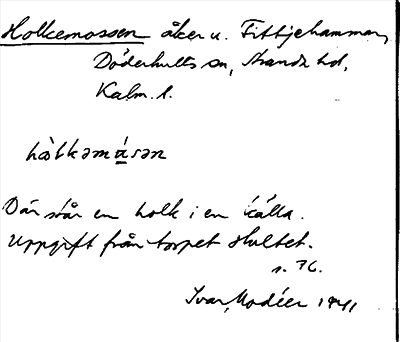 Holkemossen åker u. Fittjehammar,
Döderhults sn, Stranda hd,
Kalm. l.
hòlkəmɷ́sən
Där står en holk i en källa.
Uppgift från torpet Hultet.
s. 76.
Ivar Modéer 1941